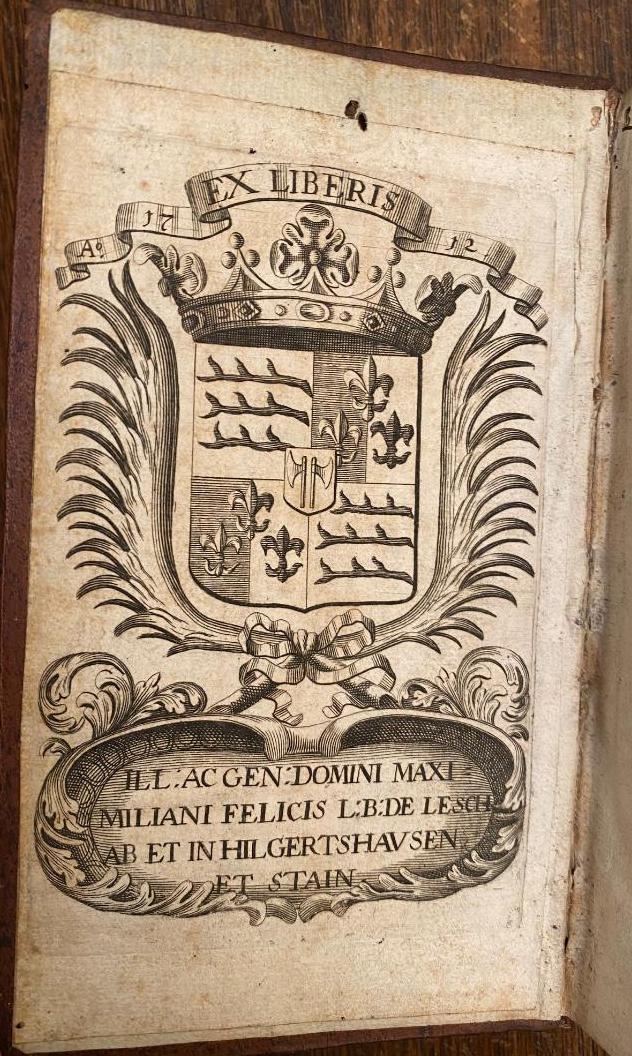 EX LIBERIS
Aº 17 12
ILL: AC GEN: DOMINI MAXI-
MILIANI FELICIS L:B: DE LESCH
AB ET IN HILGERTSHAVSEN
ET STAIN